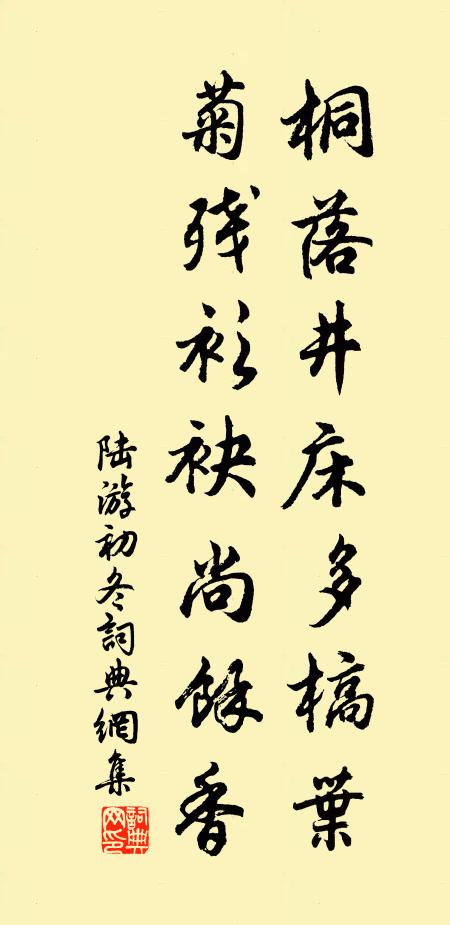 桐落井床多槁葉
菊残衫袂尚餘香
陆游初冬詞典網集
詞典网印